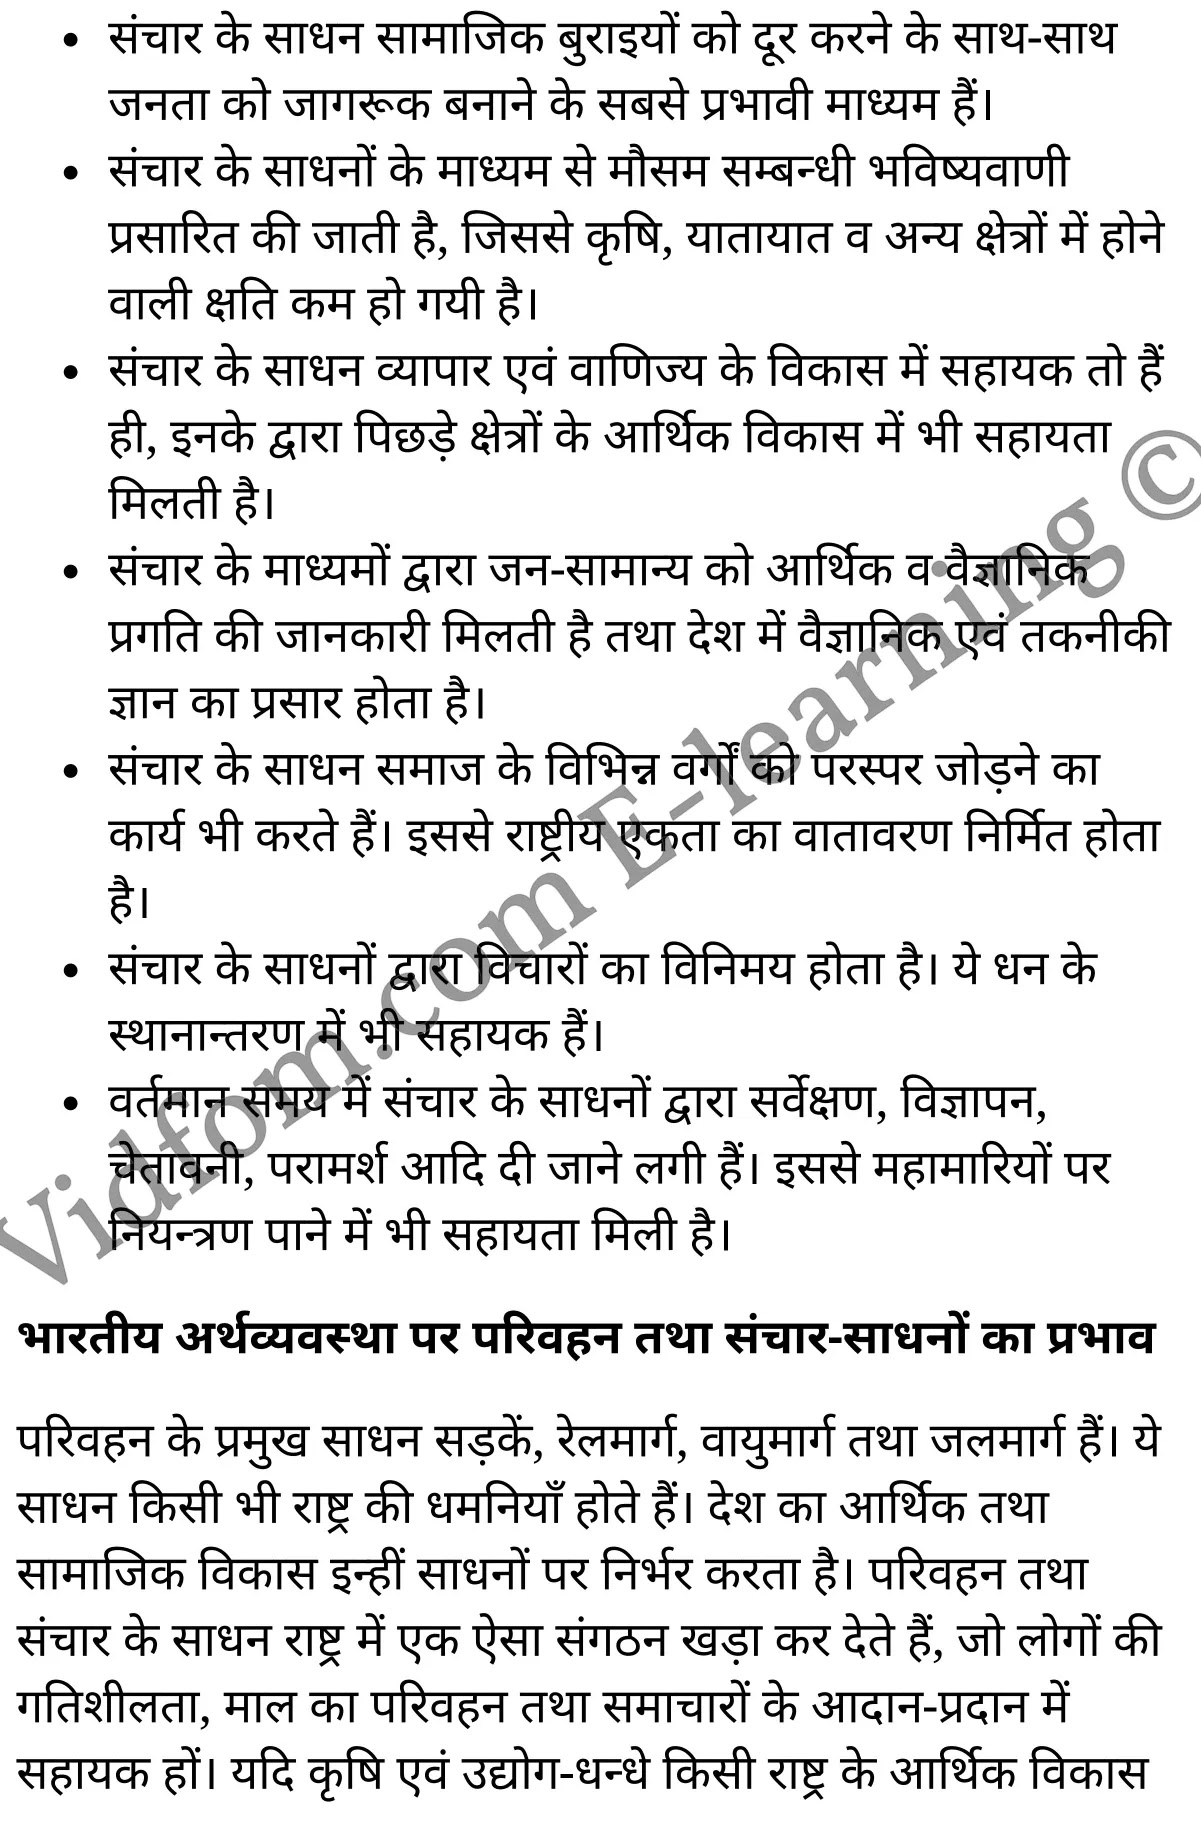 • संचार के साधन सामाजिक बुराइयों को दूर करने के साथ-साथ
जनता को जागरूक बनाने के सबसे प्रभावी माध्यम हैं।
• संचार के साधनों के माध्यम से मौसम सम्बन्धी भविष्यवाणी
प्रसारित की जाती है, जिससे कृषि, यातायात व अन्य क्षेत्रों में होने
वाली क्षति कम हो गयी है।
• संचार के साधन व्यापार एवं वाणिज्य के विकास में सहायक तो हैं
ही, इनके द्वारा पिछड़े क्षेत्रों के आर्थिक विकास में भी सहायता
मिलती है।
• संचार के माध्यमों द्वारा जन-सामान्य को आर्थिक व वैज्ञानिक
प्रगति की जानकारी मिलती है तथा देश में वैज्ञानिक एवं तकनीकी
ज्ञान का प्रसार होता है।
• संचार के साधन समाज के विभिन्न वर्गों को परस्पर जोड़ने का
कार्य भी करते हैं। इससे राष्ट्रीय एकता का वातावरण निर्मित होता
है।
• संचार के साधनों द्वारा विचारों का विनिमय होता है। ये धन के
स्थानान्तरण में भी सहायक हैं।
• वर्तमान समय में संचार के साधनों द्वारा सर्वेक्षण, विज्ञापन,
चेतावनी, परामर्श आदि दी जाने लगी हैं। इससे महामारियों पर
नियन्त्रण पाने में भी सहायता मिली है।
भारतीय अर्थव्यवस्था पर परिवहन तथा संचार-साधनों का प्रभाव
परिवहन के प्रमुख साधन सड़कें, रेलमार्ग, वायुमार्ग तथा जलमार्ग हैं। ये
साधन किसी भी राष्ट्र की धमनियाँ होते हैं। देश का आर्थिक तथा
सामाजिक विकास इन्हीं साधनों पर निर्भर करता है। परिवहन तथा
संचार के साधन राष्ट्र में एक ऐसा संगठन खड़ा कर देते हैं, जो लोगों की
गतिशीलता, माल का परिवहन तथा समाचारों के आदान-प्रदान में
सहायक हों। यदि कृषि एवं उद्योग-धन्धे किसी राष्ट्र के आर्थिक विकास
Vidfom.com E-learning ©